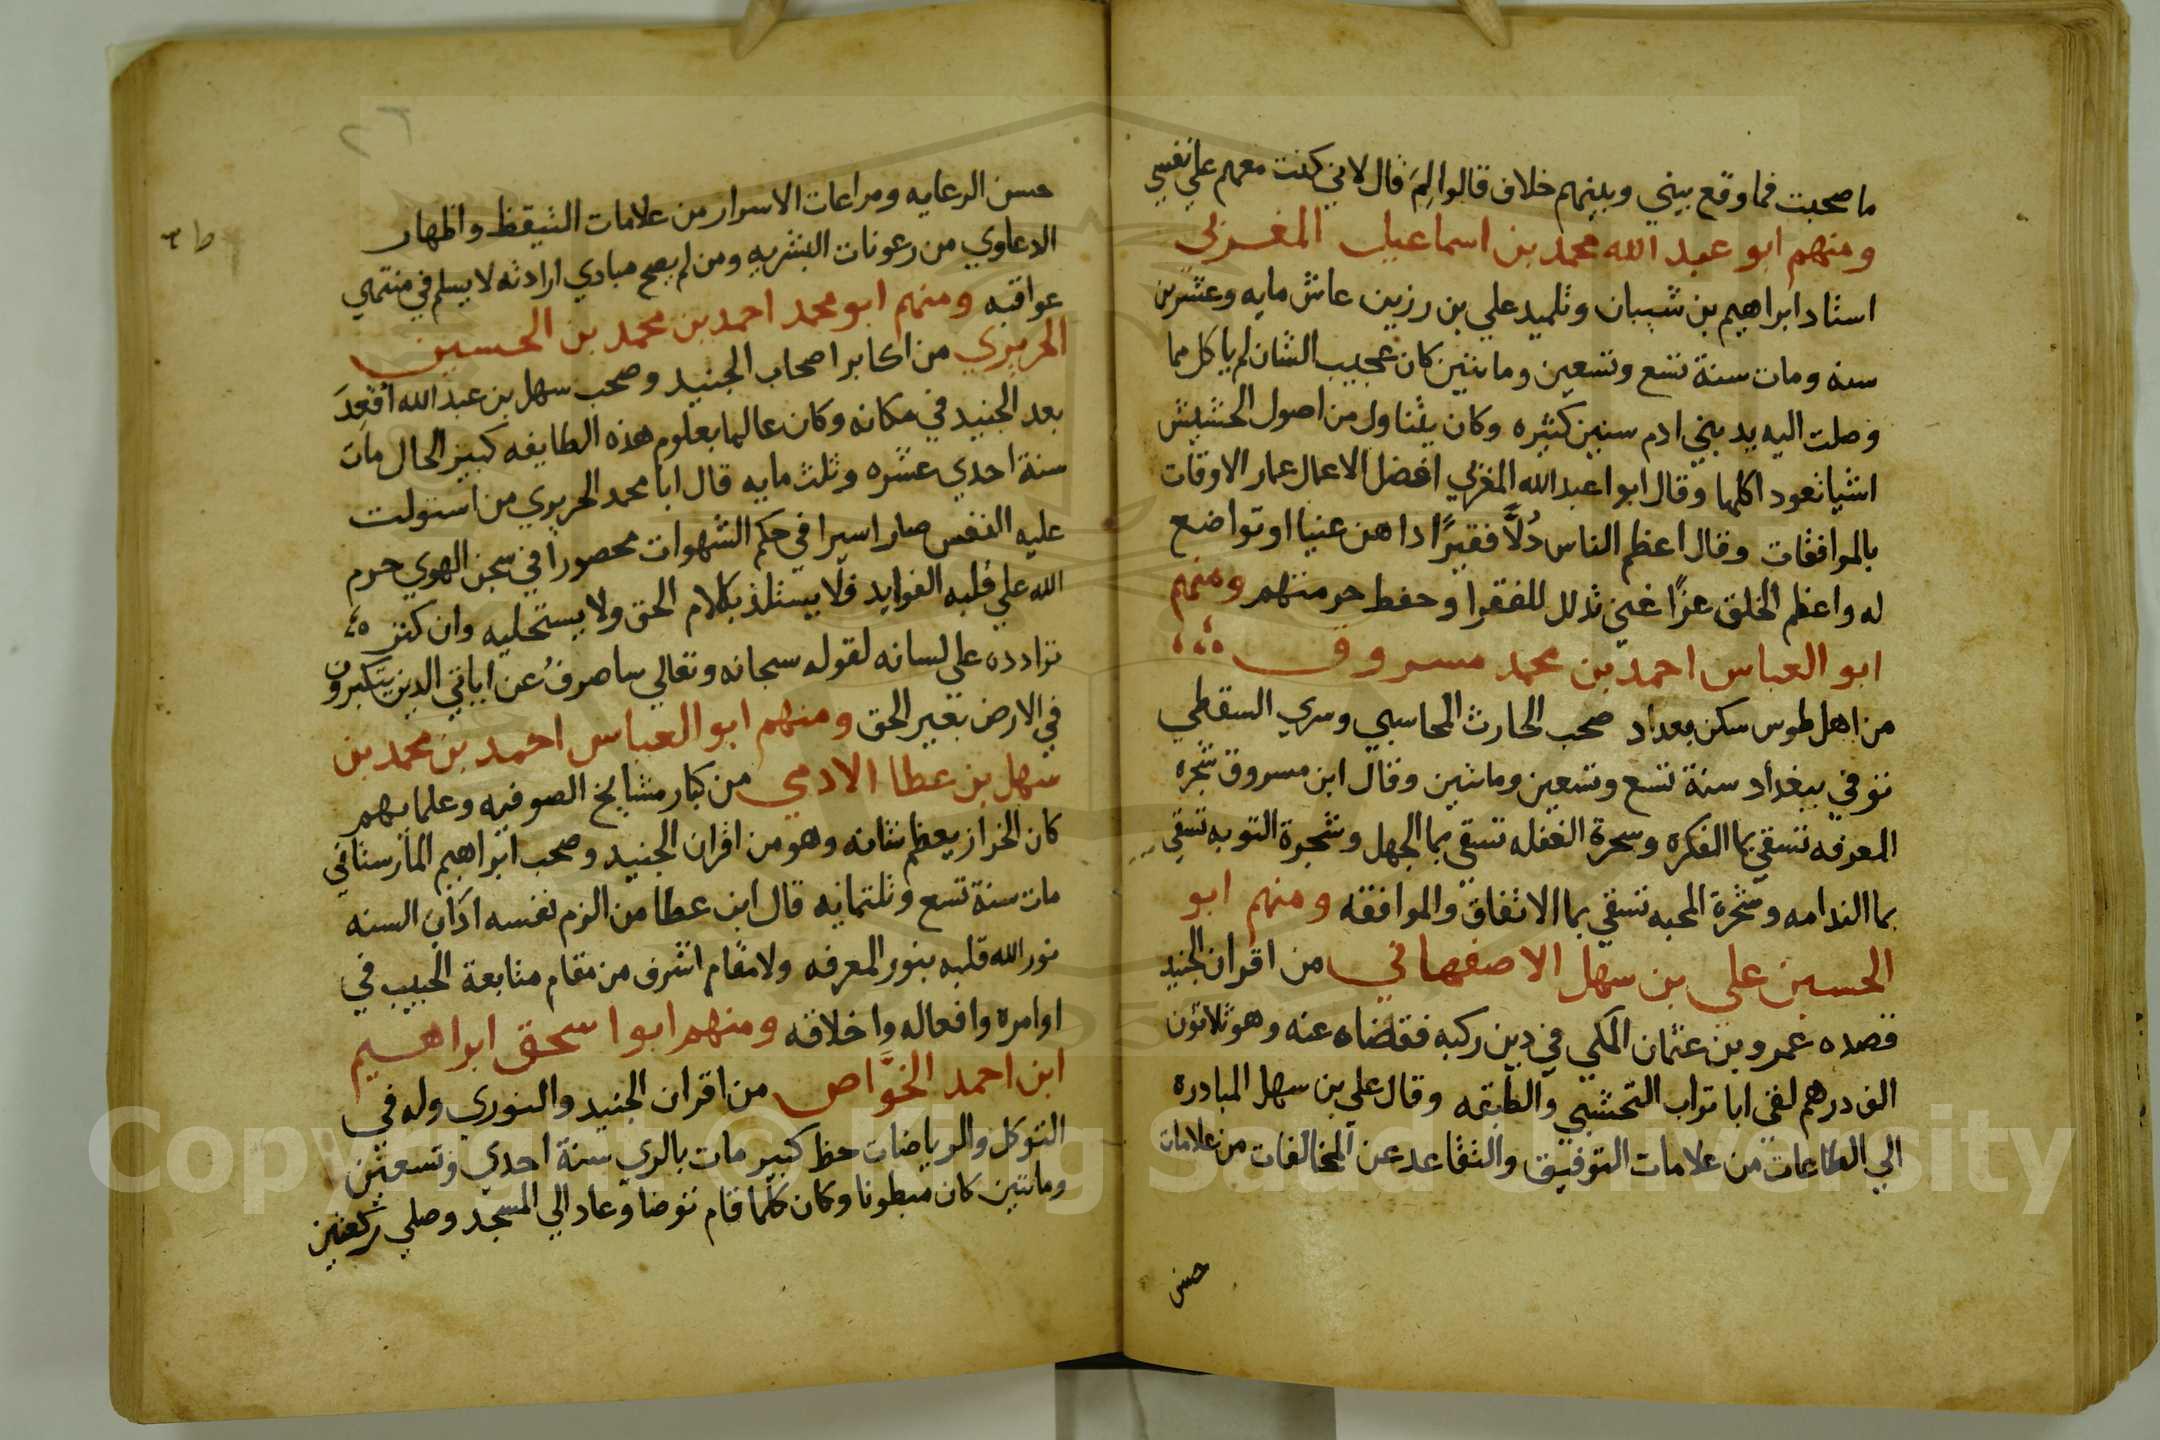 ما صحبت فما وقع بيني وبينهم خلاف قالوا لِمَ قال لاني كنت معهم علي نفسي
ومنهم ابو عبد الله محمد بن اسماعيل المغربي
استاد ابراهيم بن شيبان وتلميد علي بن رزين عاش مايه وعشرين
سنه ومات سنة تسع وتسعين وماتين كان عجيب الشان لم ياكل مما
وصلت اليه يد بني ادم سنين كثيره وكان يتناول من اصول الحشيش
اشيا تعود اكلها وقال ابوا عبد الله المغربي افضل الاعمال عمار الاوقات
بالموافقات وقال اعظم الناس دُلاًّ فقيرًا داهن غنيا او تواضع
له واعظم الخلق عزًا غني تدلل للفقرا وحفط حرمتهم ومنهم
ابو العباس احمد بن محمد مسروق
من اهل طوس سكن بعداد صحب الحارث المحاسبي وسري السقطي
توفي ببغداد سنة تسع وتسعين وماتين وقال ابن مسروق شجره
المعرفه تسقي بما الفكرة وسجرة الغفله تسقي بما الجهل وشجرة التوبه تسقي
بما الندامه وشجرة المحبه تسقي بما الاتفاق والموافقه ومنهم ابو
الحسين علي بن سهل الاصفهاني من اقران الجنيد
قصده عمرو بن عثمان المكي في دين ركبه فقضاه عنه وهو ثلاثون
الف درهم لقي ابا تراب التحشبي والطبقه وقال علي بن سهل المبادرة
الي الطاعات من علامات التوفيق والتقاعد عن المخالفات من علامات
حسن
٢٦
حسن الرعايه ومراعات الاسرار من علامات التيقظ واظهار
الدعاوي من رعونات البشريه ومن لم يصح مبادي ارادته لا يسلم في منتهي
عواقبه ومنهم ابو محمد احمد بن محمد بن الحسين
الحريري من اكابر اصحاب الجنيد وصحب سهل بن عبد الله اُقْعِدَ
بعد الجنيد في مكانه وكان عالما بعلوم هذه الطايفه كبير الحال مات
سنة احدي عشره وثلث مايه قال ابا محمد الحريري من استولت
عليه النفس صار اسيرا في حكم الشهوات محصوراً في سجن الهوي حرم
الله علي قلبه الفوايد فلا يستلذ بكلام الحق ولا يستحليه وان كثر
ترادده على لسانه لقوله سبحانه وتعالي ساصرفُ عن اياتي الدين يتكبرون
في الارض بغير الحق ومنهم ابو العباس احمد بن محمد بن
سهل بن عطا الادمي من كبار مشايخ الصوفيه وعلمايهم
كان الخراز يعظم شانه وهو من اقران الجنيد وصحب ابراهيم المارستاني
مات سنة تسع وثلتمايه قال ابن عطا من الزم نفسه اداب السنه
نور الله قلبه بنور المعرفه ولا مقام اشرف من مقام متابعة الحبيب في
اوامره وافعاله واخلاقه ومنهم ابوا سحق ابراهيم
ابن احمد الخوَّاص من اقران الجنيد والنوري وله في
التوكل والرياضات حظ كبير مات بالري سنة احدي وتسعين
وماتين كان مبطونا وكان كلما قام توضا وعاد الي المسجد وصلي ركعتين
Copyright © King Saud University